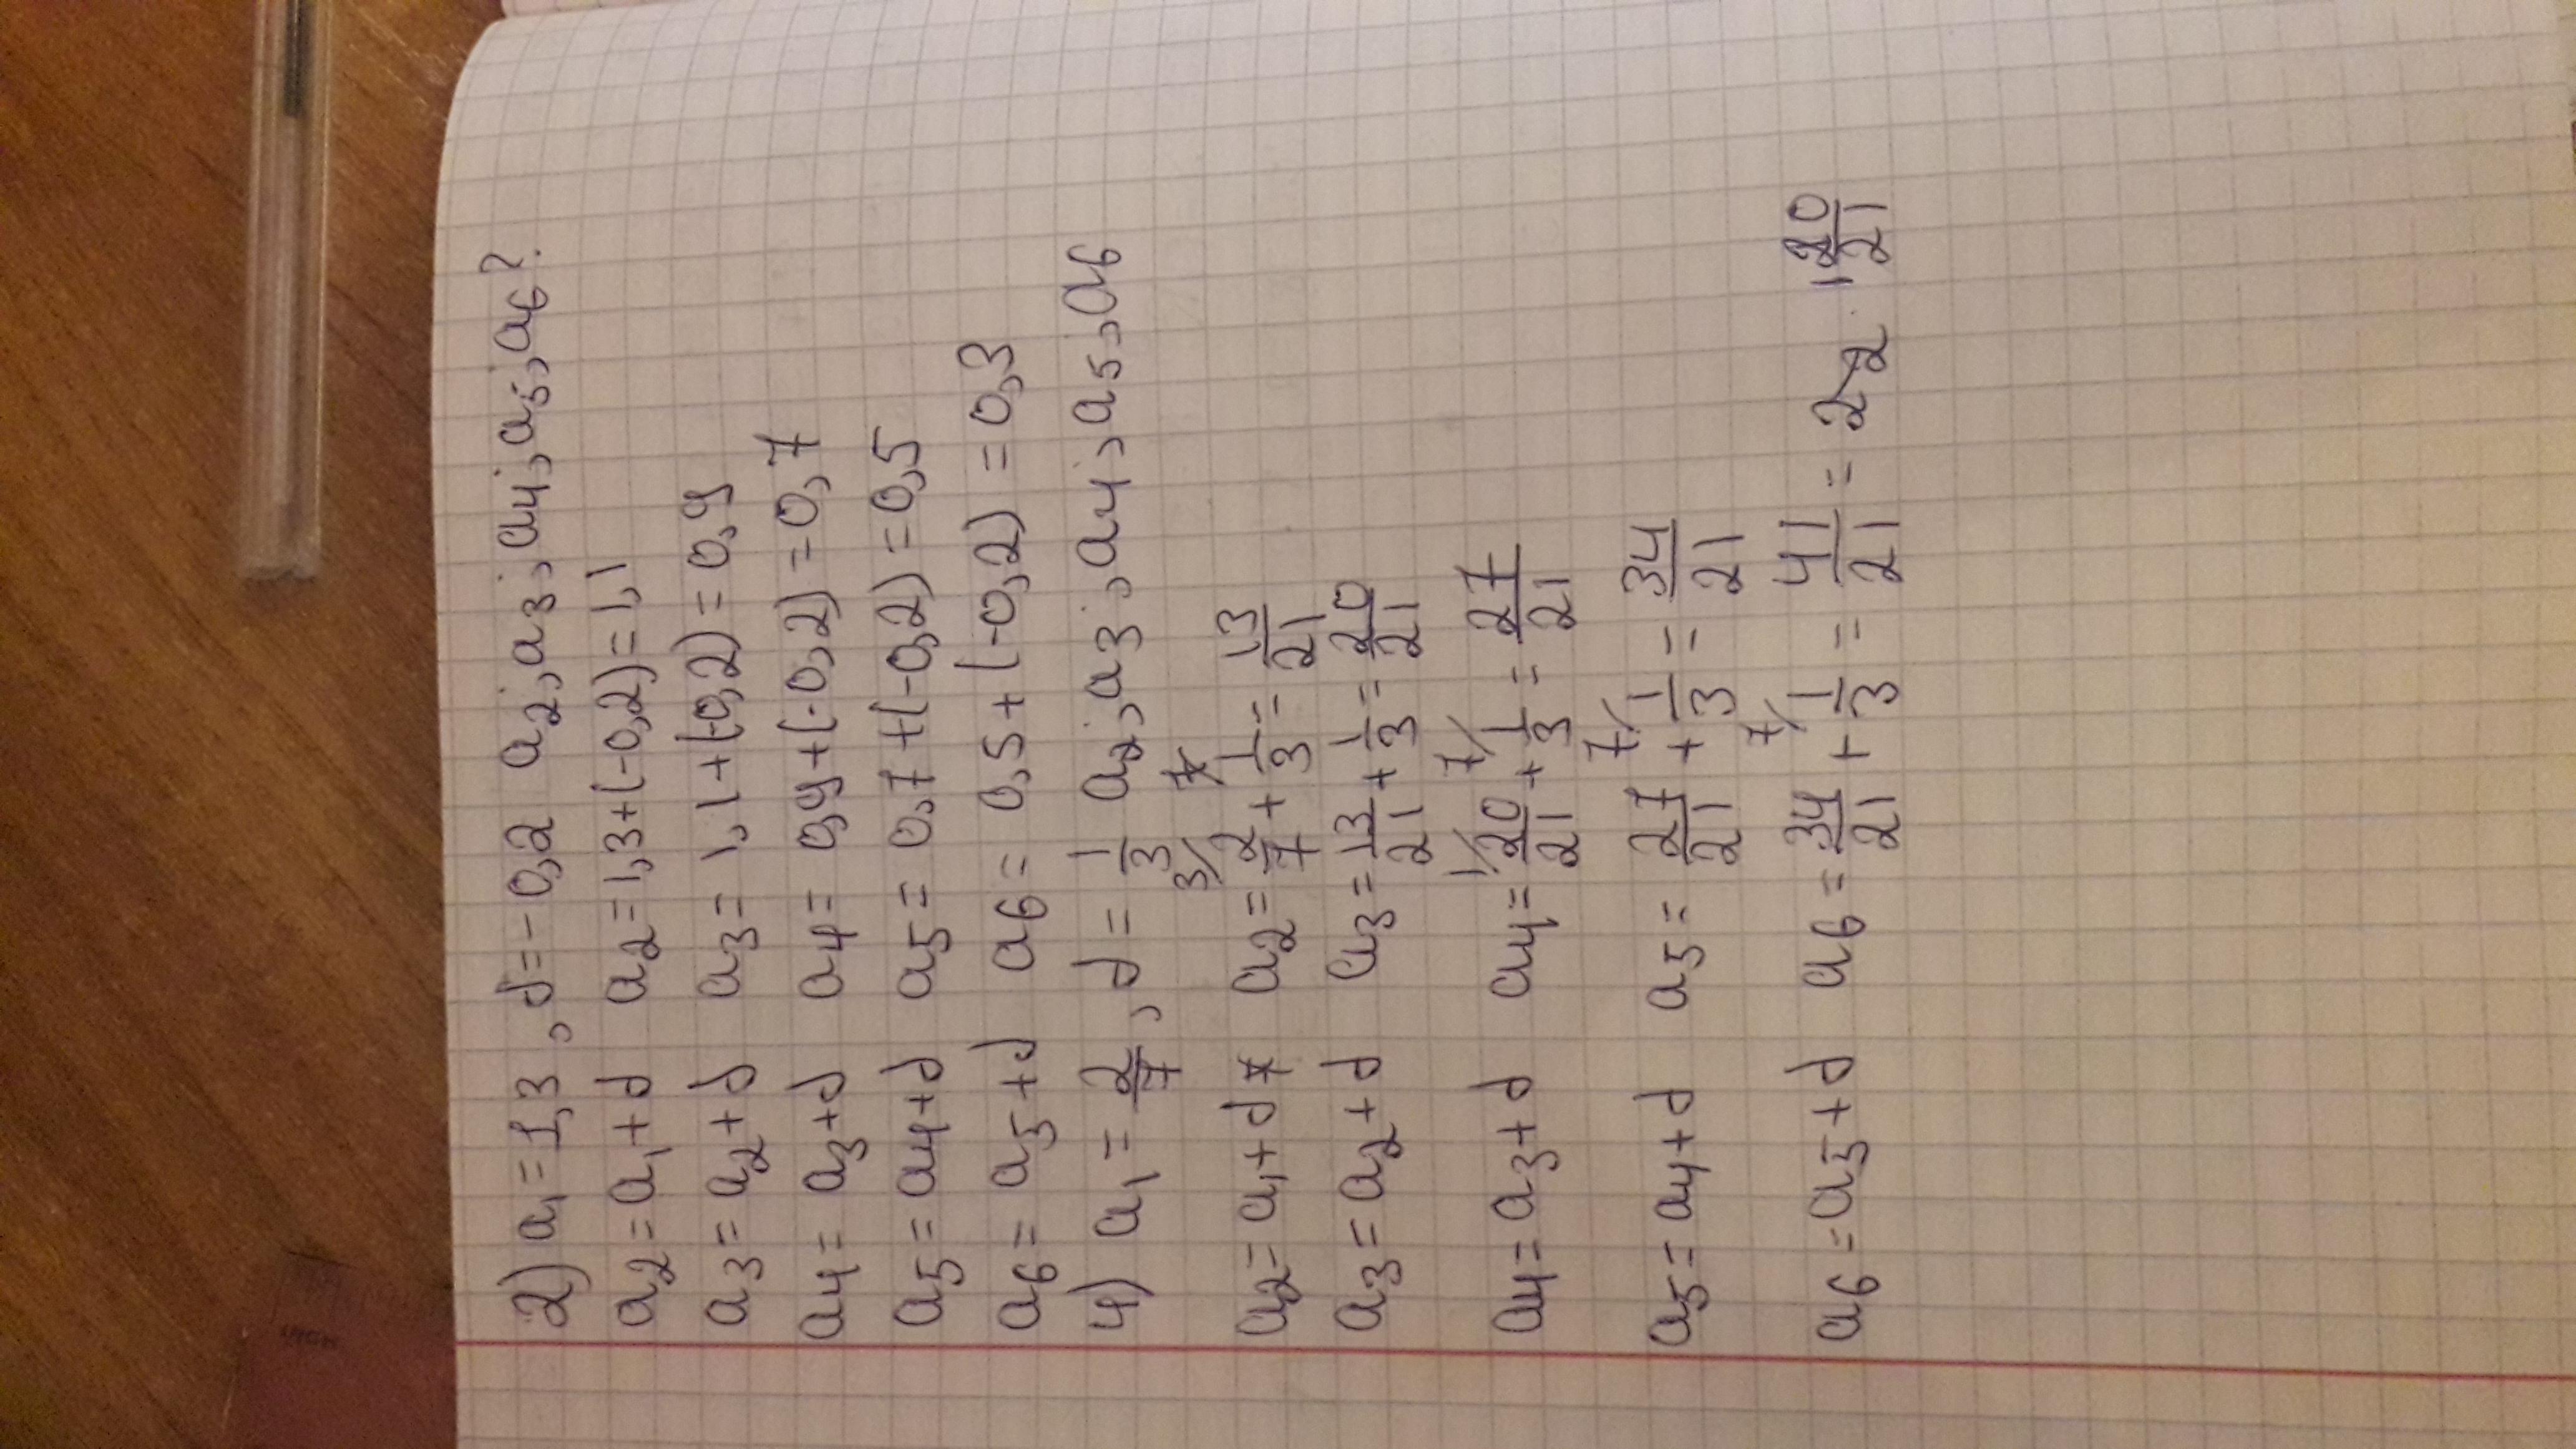 2) a₁=1,3, d=-0,2 a₂; a₃; a₄; a₅; a₆?
a₂=a₁+d a₂=1,3+(-0,2)=1,1
a₃=a₂+d a₃=1,1+(-0,2)=0,9
a₄=a₃+d a₄=0,9+(-0,2)=0,7
a₅=a₄+d a₅=0,7+(-0,2)=0,5
a₆=a₅+d a₆=0,5+(-0,2)=0,3
4) a₁=2/7, d=1/3 a₂; a₃; a₄; a₅; a₆
a₂=a₁+d a₂=2/7+1/3=13/21
a₃=a₂+d a₃=13/21+1/3=20/21
a₄=a₃+d a₄=20/21+1/3=27/21
a₅=a₄+d a₅=27/21+1/3=34/21
a₆=a₅+d a₆=34/21+1/3=41/21= 1 20/21